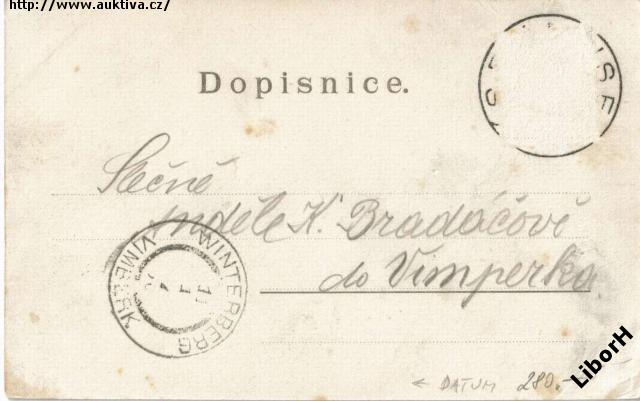 http://www.auktiva.cz/
Dopisnice.
Slečně
Anděle K. Bradáčové
do Vimperka.
WINTERBERG
VIMBERK
← DATUM 280.-
LiborH